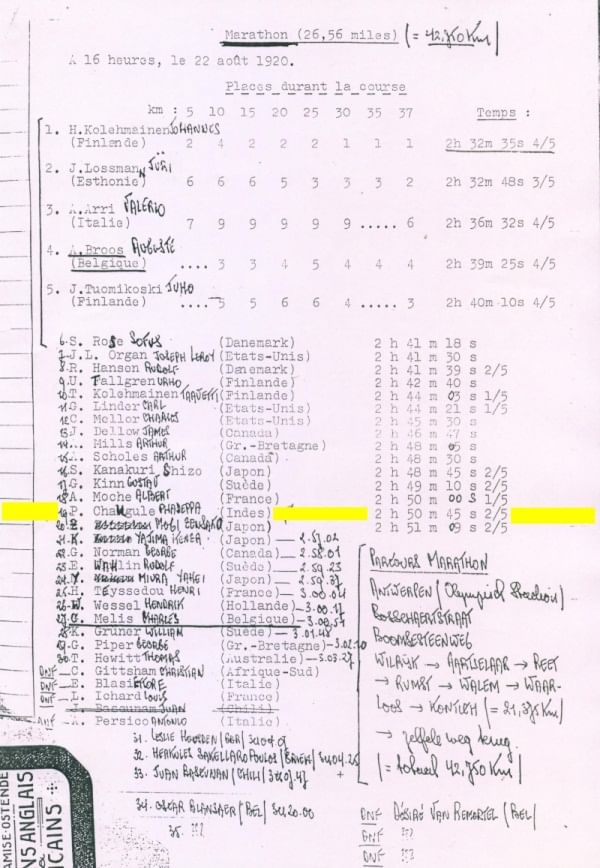 Marathon (26,56 miles) (= 42,750 Km)
A 16 heures, le 22 août 1920.
Places durant la course
km : 5 10 15 20 25 30 35 37 Temps :
1. H.Kolehmainen JOHANNES
(Finlande) 2 4 2 2 2 1 1 1 2h 32m 35s 4/5
2. J.Lossman JURI
(Esthonie) 6 6 6 5 3 3 3 2 2h 32m 48s 3/5
3. A.Arri VALERIO
(Italie) 7 9 9 9 9 9 ..... 6 2h 36m 32s 4/5
4. A.Broos AUGUSTE
(Belgique) .... 3 3 4 5 4 4 4 2h 39m 25s 4/5
5. J.Tuomikoski JUHO
(Finlande) .... 5 5 6 6 4 ..... 3 2h 40m 10s 4/5
6. S. Rose SOFUS (Danemark) 2 h 41 m 18 s
7. J.L. Organ JOSEPH LEROY (Etats-Unis) 2 h 41 m 30 s
8. R. Hanson RUDOLF (Danemark) 2 h 41 m 39 s 2/5
9. U. Fallgren URHO (Finlande) 2 h 42 m 40 s
10. T. Kolehmainen TAAVETTI (Finlande) 2 h 44 m 03 s 1/5
11. G. Linder CARL (Etats-Unis) 2 h 44 m 21 s 1/5
12. C. Mellor CHARLES (Etats-Unis) 2 h 45 m 30 s
13. J. Dellow JAMES (Canada) 2 h 46 m 47 s
14. Mills ARTHUR (Gr.-Bretagne) 2 h 48 m 05 s
15. Scholes ARTHUR (Canada) 2 h 48 m 30 s
16. S. Kanakuri Shizo (Japon) 2 h 48 m 45 s 2/5
17. G. Kinn GUSTAV (Suède) 2 h 49 m 10 s 2/5
18. A. Moche ALBERT (France) 2 h 50 m 00 s 1/5
19. P. Chaugule PHADEPPA (Indes) 2 h 50 m 45 s 2/5
20. Z. MOGI ZENSAKU (Japon) 2 h 51 m 09 s 2/5
21. K. YAJIMA KENZA (Japon) — 2.57.02
22. G. Norman GEORGE (Canada) — 2.58.01
23. E. Wahlin RUDOLF (Suède) — 2.59.23
24. Y. MIURA YAHEI (Japon) — 2.59.37
25. H. Teyssedou HENRI (France) — 3.00.04
26. W. Wessel HENDRIK (Hollande) — 3.00.17
27. C. Melis CHARLES (Belgique) — 3.00.54
28. K. Gruner WILLIAM (Suède) — 3.01.48
29. G. Piper GEORGE (Gr.-Bretagne) — 3.02.10
30. T. Hewitt THOMAS (Australie) — 3.03.27
DNF — C. Gittsham CHRISTIAN (Afrique-Sud)
DNF — E. Blasi ETTORE (Italie)
DNF — L. Ichard LOUIS (France)
J. Bascunam JUAN (Chili)
DNF — A. Persico ANTONIO (Italie)
31. LESLIE HOUSDEN (GBR)
32. HERAKULES SAKELLAROPOULOS
33. JUAN BASCUNAN (CHILI)
34. OSCAR BLANSAER (BEL) 3u20.00
35. ???
PARCOURS MARATHON
ANTWERPEN (Olympisch Stadion)
BOSSCHAERTSTRAAT
BOOMSTEENWEG
WILRIJK → AARTSELAAR → REET
→ RUMST → WALEM → WAAR-
LOOS → KONTICH (= 21,375 Km)
→ zelfde weg terug.
(= totaal 42,750 Km)
DNF Désiré VAN REMORTEL (BEL)
DNF ???
DNF ???
AMISE-OSTENDE
NS ANGLAIS
&
ICAINS